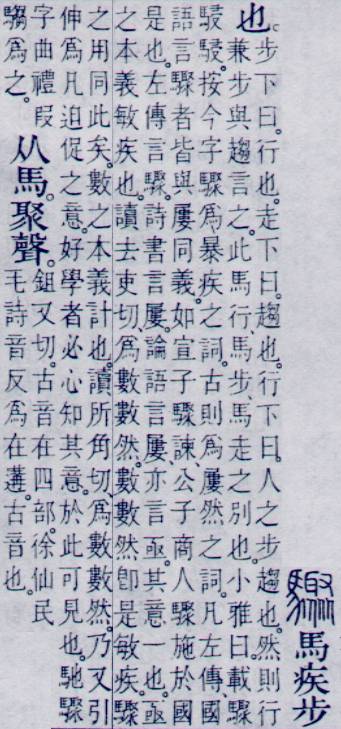 驟馬疾步
也。
步下曰。行也。走下曰。趨也。行下曰。人之步趨也。然則行
兼步與趨言之。此馬行、馬步、馬走之別也。小雅曰。載驟
駸駸。按今字驟爲暴疾之詞。古則爲屢然之詞。凡左傳、國
語言驟者皆與屢同義。如宣子驟諫、公子商人驟施於國
是也。左傳言驟。詩書言屢。論語言屢、亦言亟。其意一也。亟
之本義敏疾也。讀去吏切、爲數數然。數數然卽是敏疾。驟
之用同此矣。數之本義計也。讀所角切、爲數數然。乃又引
伸爲凡迫促之意。好學者必心知其意。於此可見也。馳驟
字曲禮叚
騶爲之。
从馬。聚聲。
鉏又切。古音在四部。徐仙民
毛詩音反爲在遘。古音也。